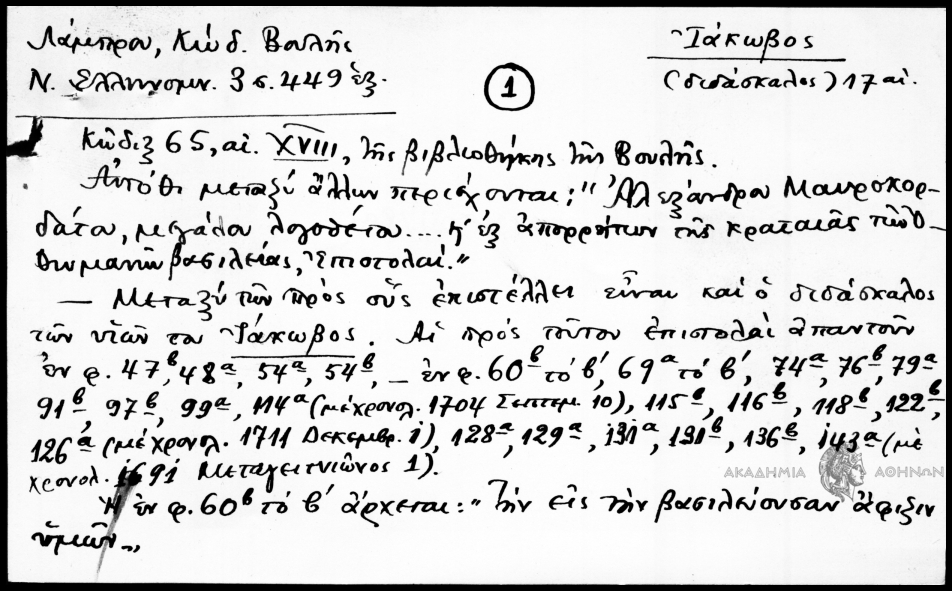 Λάμπρου, Κώδ. Βουλῆς
Ἰάκωβος
Ν. Ἑλληνομν. 3 σ. 449 ἑξ.
(διδάσκαλος) 17 αἰ.
1
Κῶδιξ 65, αἰ. XVIII, τῆς βιβλιοθήκης τῆς Βουλῆς.
Αὐτόθι μεταξὺ ἄλλων περιέχονται: "Ἀλεξάνδρου Μαυροκορ-
δάτου, μεγάλου λογοθέτου.... ἐξ ἀπορρήτων τῆς κραταιᾶς τῶν Ὀ-
θωμανῶν βασιλείας, Ἐπιστολαί."
— Μεταξὺ τῶν πρὸς οὓς ἐπιστέλλει εἶναι καὶ ὁ διδάσκαλος
τῶν υἱῶν του Ἰάκωβος. Αἱ πρὸς τοῦτον ἐπιστολαὶ ἀπαντοῦν
ἐν φ. 47β, 48α, 54α, 54β, — ἐν φ. 60β τὸ β', 69α τὸ β', 74α, 76β, 79α
91β, 97β, 99α, 114α (μὲ χρονολ. 1704 Σεπτεμ. 10), 115β, 116β, 118β, 122β,
126α (μὲ χρονολ. 1711 Δεκεμβρ. 1), 128α, 129α, 131α, 131β, 136β, 143α (μὲ
χρονολ. 1691 Μεταγειτνιῶνος 1).
Ἡ ἐν φ. 60β τὸ β' ἄρχεται: "Τὴν εἰς τὴν βασιλεύουσαν ἄφιξιν
ὑμῶν"
ΑΚΑΔΗΜΙΑ ΑΘΗΝΩΝ